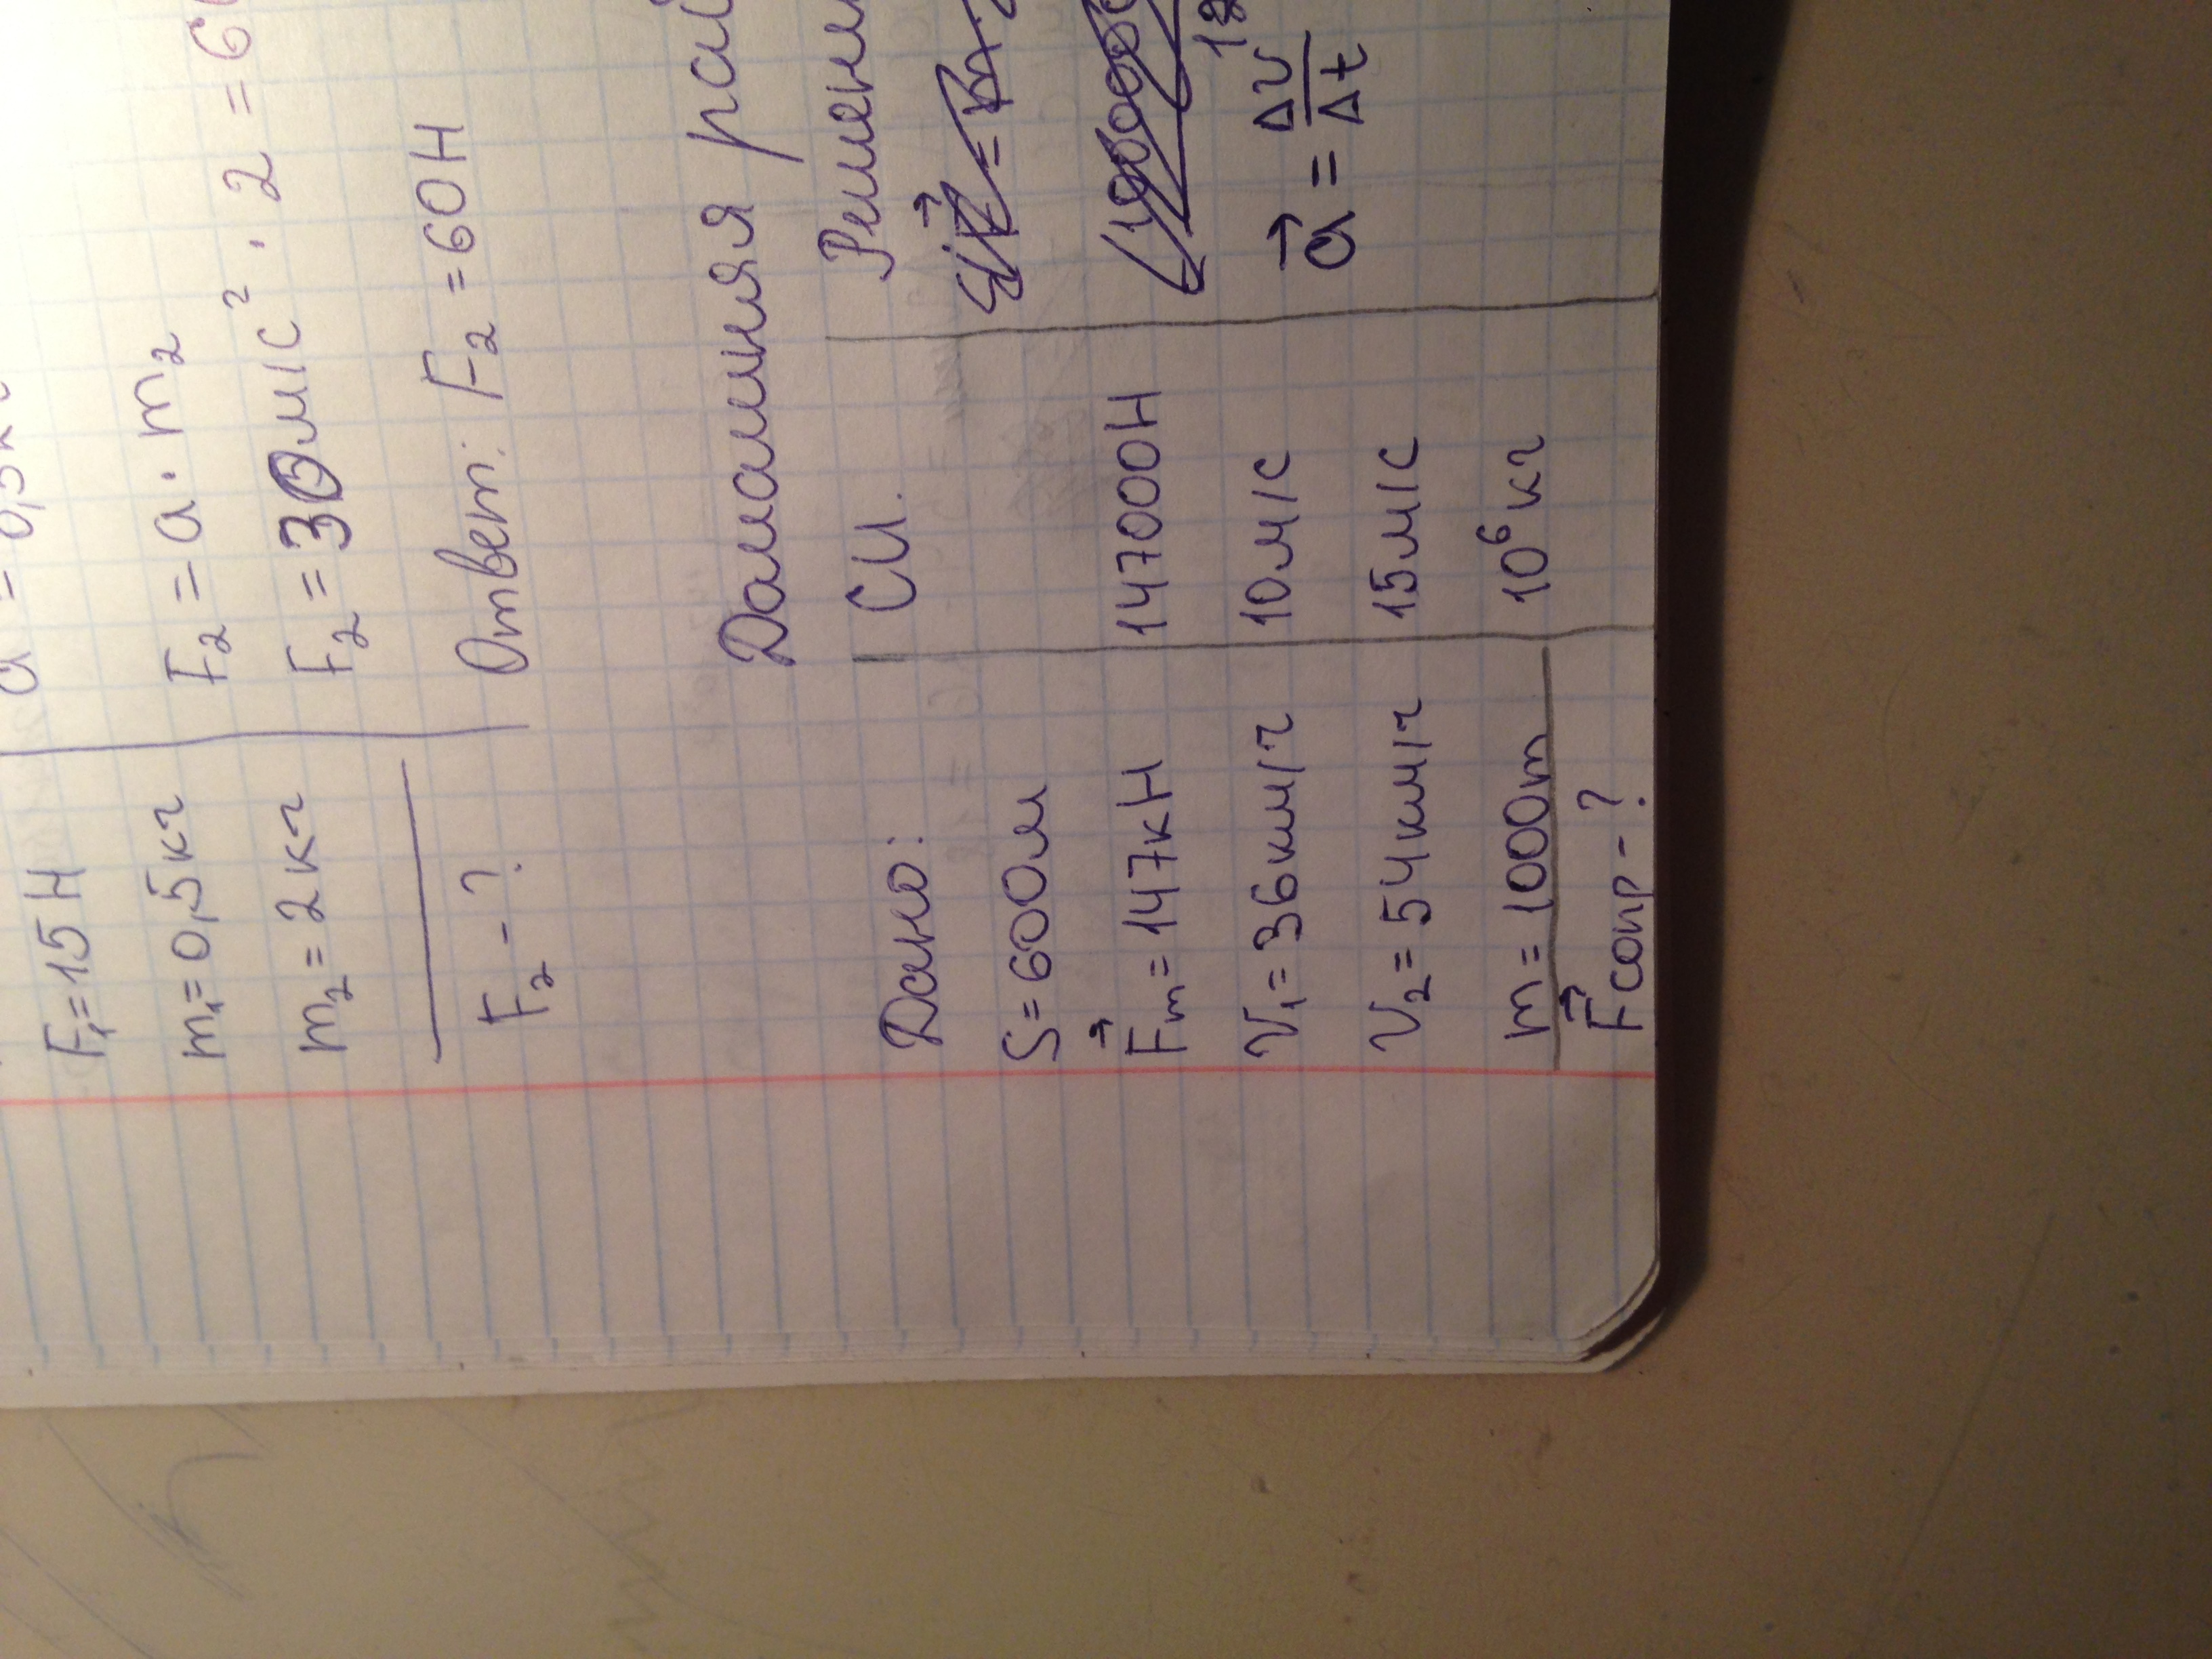 F₁=15Н
m₁=0,5кг
m₂=2кг
F₂-?
F₂=a·m₂
F₂=30м/с²·2=6
Ответ: F₂=60Н
Домашняя
Дано:
S=600м
F⃗т=147кН
V₁=36км/ч
V₂=54км/ч
m=1000т
F⃗сопр-?
СИ.
147000Н
10м/с
15м/с
10⁶кг
a⃗=ΔV/Δt